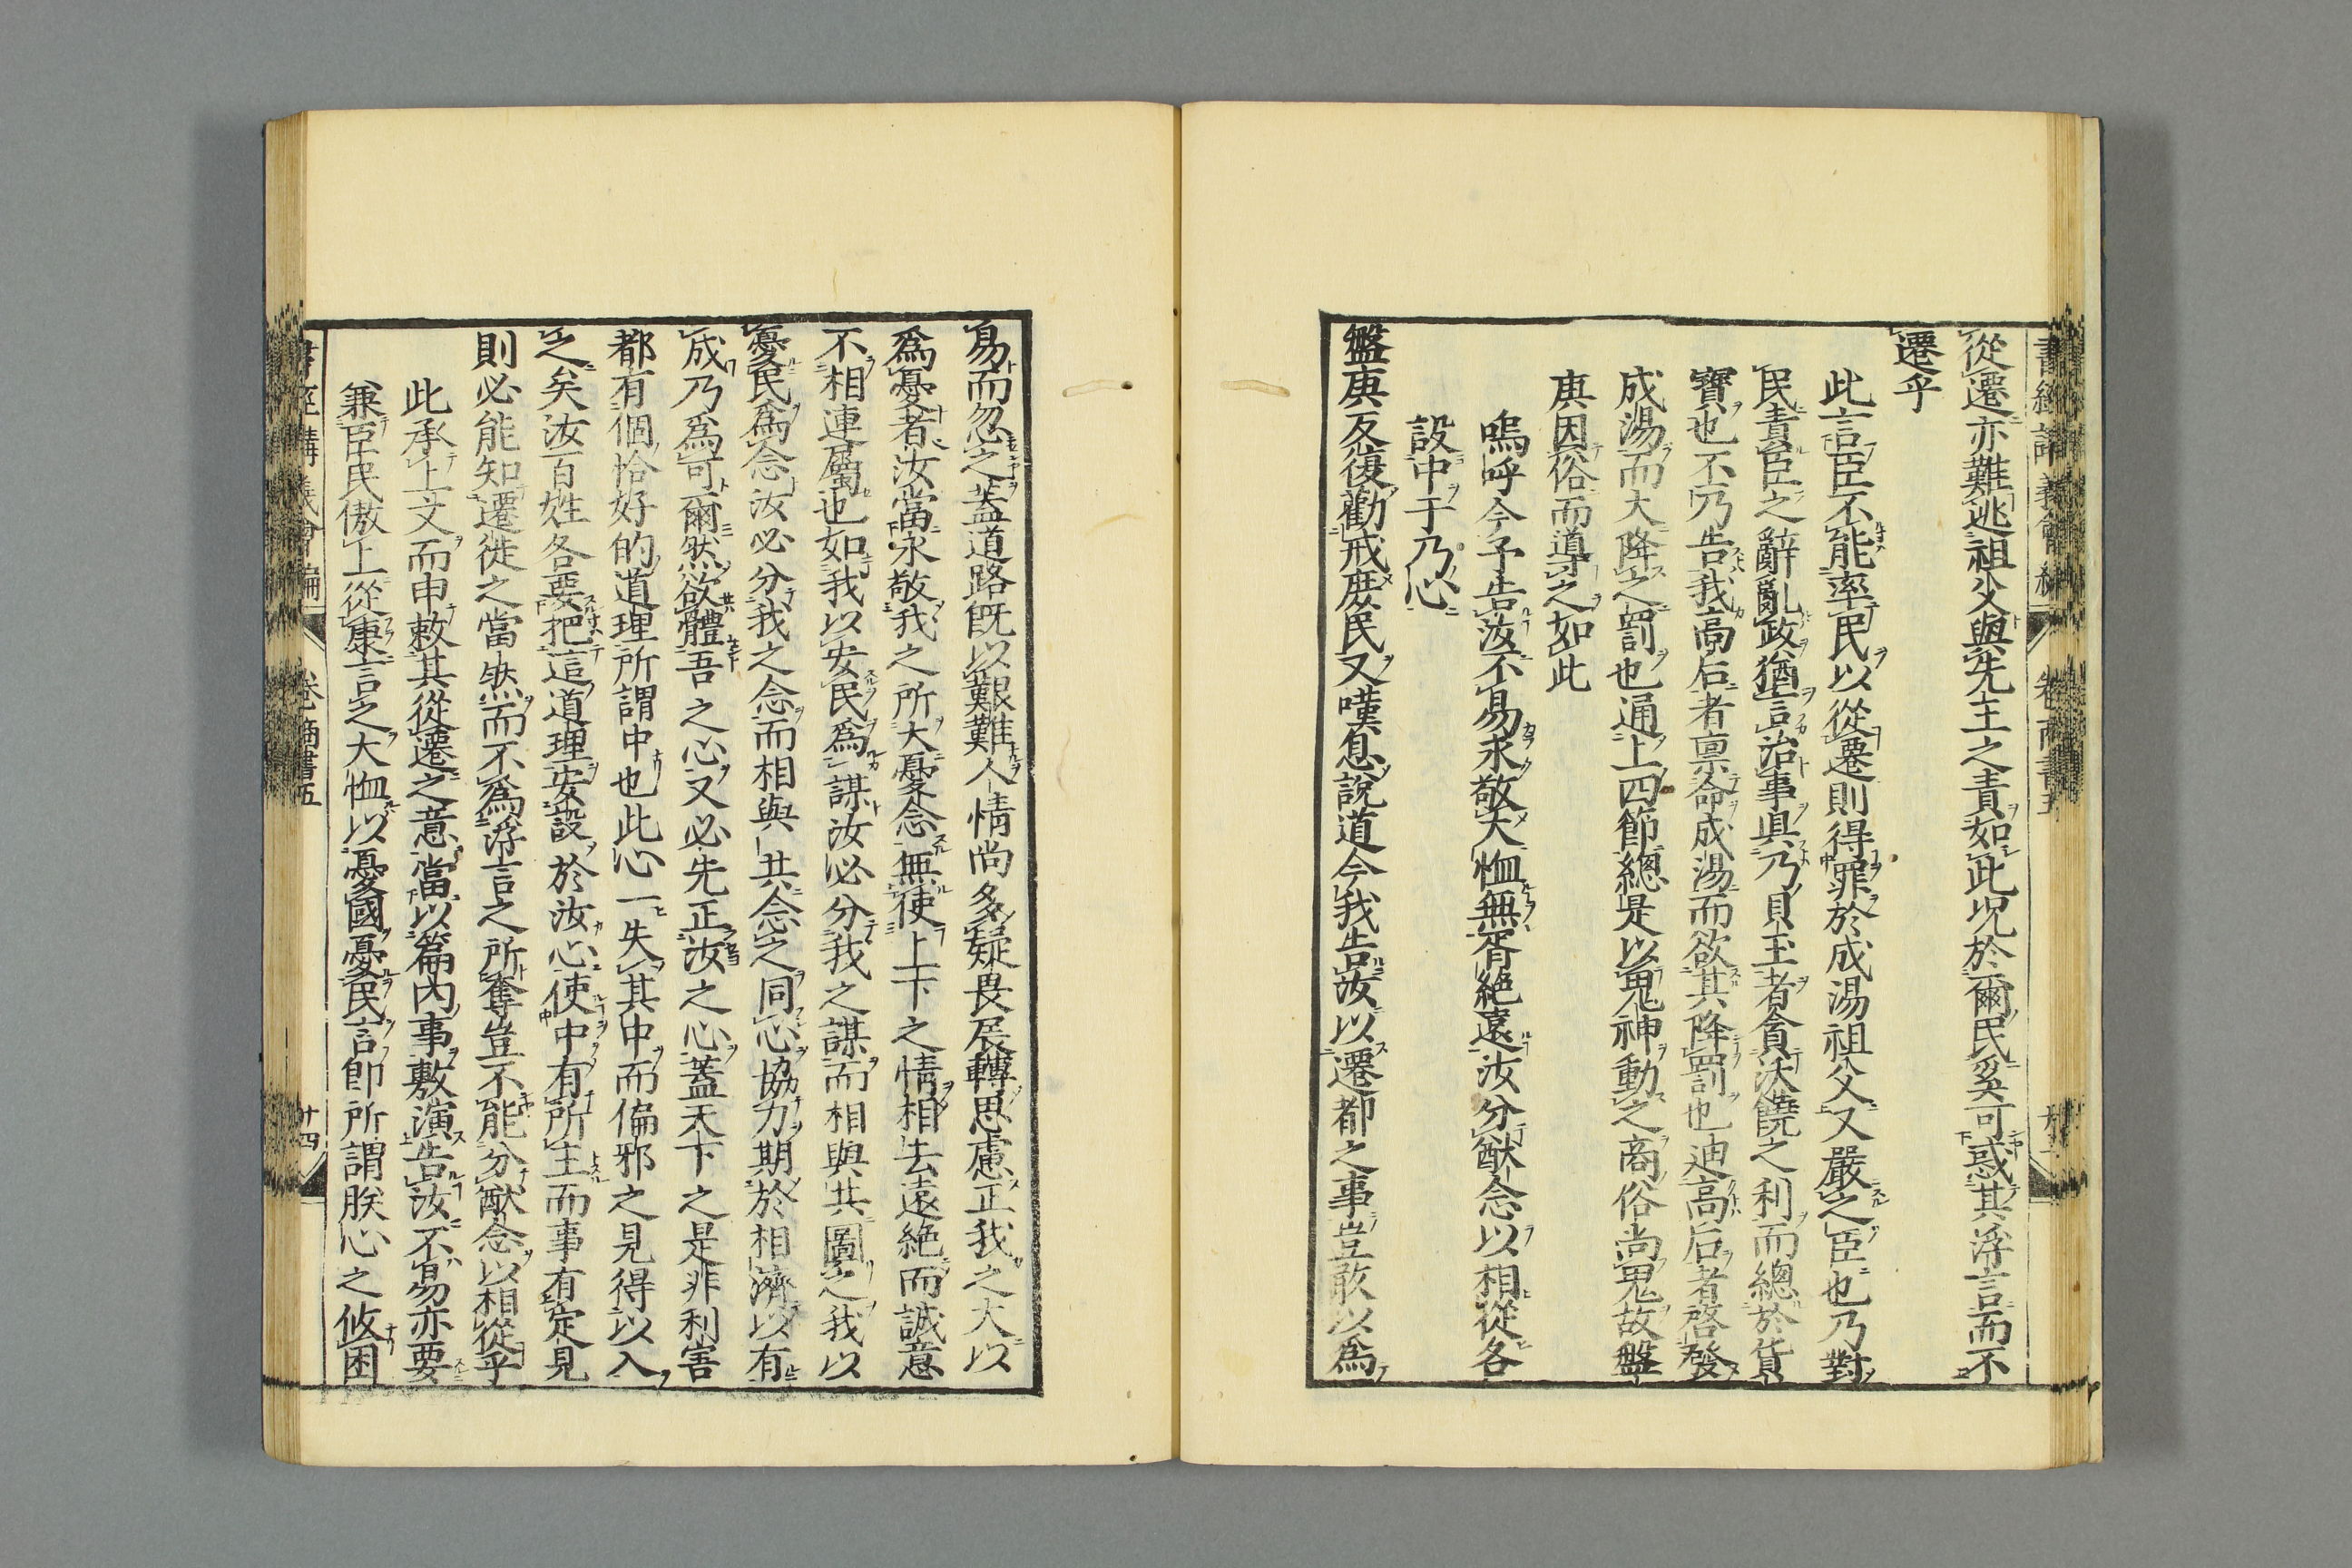 從遷亦難逃祖父與先王之責如此况於爾民奚可惑其浮言而不
遷乎
此言臣不能率民以從遷則得罪於成湯祖父又嚴之臣也乃對
民責臣之辭亂政猶言治事具乃貝玉者貪沃饒之利而總於貨
寶也不乃告我高后者禀命成湯而欲其降罰也迪高后者啓發
成湯而大降之罰也通上四節總是以鬼神動之商俗尚鬼故盤
庚因俗而導之如此
嗚呼今予告汝不易永敬大恤無胥絶遠汝分猷念以相從各
設中于乃心
盤庚反復勸戒庶民又嘆息說道今我告汝以遷都之事豈敢以爲
易而忽之蓋道路既以艱難人情尚多疑畏展轉思慮正我之大以
爲憂者汝當永敬我之所大憂念無使上下之情相去遠絶而誠意
不相連屬也如我以安民爲謀汝必分我之謀而相與共圖之我以
憂民爲念汝必分我之念而相與共念之同心協力期於相濟以有
成乃爲可爾然欲體吾之心又必先正汝之心蓋天下之是非利害
都有個恰好的道理所謂中也此心一失其中而偏邪之見得以入
之矣汝百姓各要把這道理安設於汝心使中有所主而事有定見
則必能知遷徙之當然而不爲浮言之所奪豈不能分猷念以相從乎
此承上文而申敕其從遷之意當以篇內事敷演告汝不易亦要
兼臣民傲上從康言之大恤以憂國憂民言即所謂朕心之攸困
書經講義會編 卷 商書五 十四